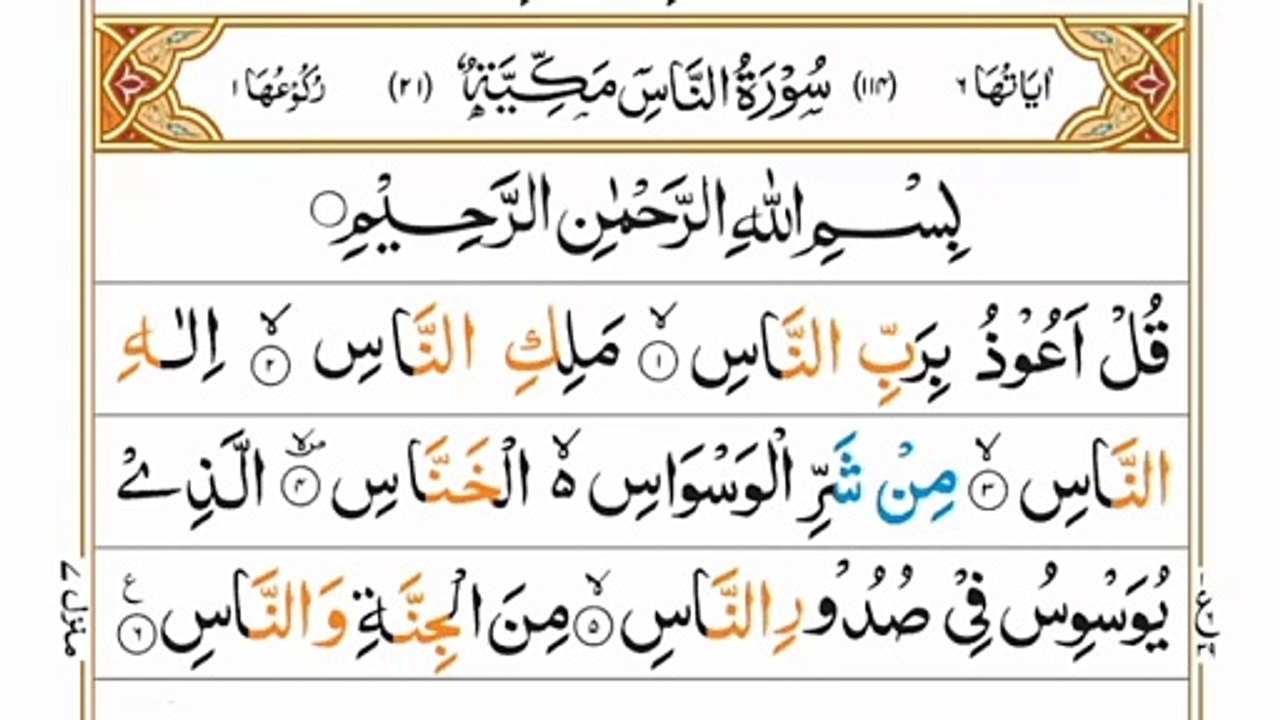 اٰيَاتُهَا ٦ (١١٤) سُوْرَةُ النَّاسِ مَكِّيَّةٌ (٢١) رُكُوْعُهَا ١
بِسْمِ اللّٰهِ الرَّحْمٰنِ الرَّحِيْمِ ○
قُلْ اَعُوْذُ بِرَبِّ النَّاسِ ۙ﴿١﴾ مَلِكِ النَّاسِ ۙ﴿٢﴾ اِلٰهِ
النَّاسِ ۙ﴿٣﴾ مِنْ شَرِّ الْوَسْوَاسِ ۙ۬ الْخَنَّاسِ ۪ۙ﴿٤﴾ الَّذِيْ
يُوَسْوِسُ فِيْ صُدُوْرِ النَّاسِ ۙ﴿٥﴾ مِنَ الْجِنَّةِ وَالنَّاسِ ﴿٦﴾ ع
منزل ٧